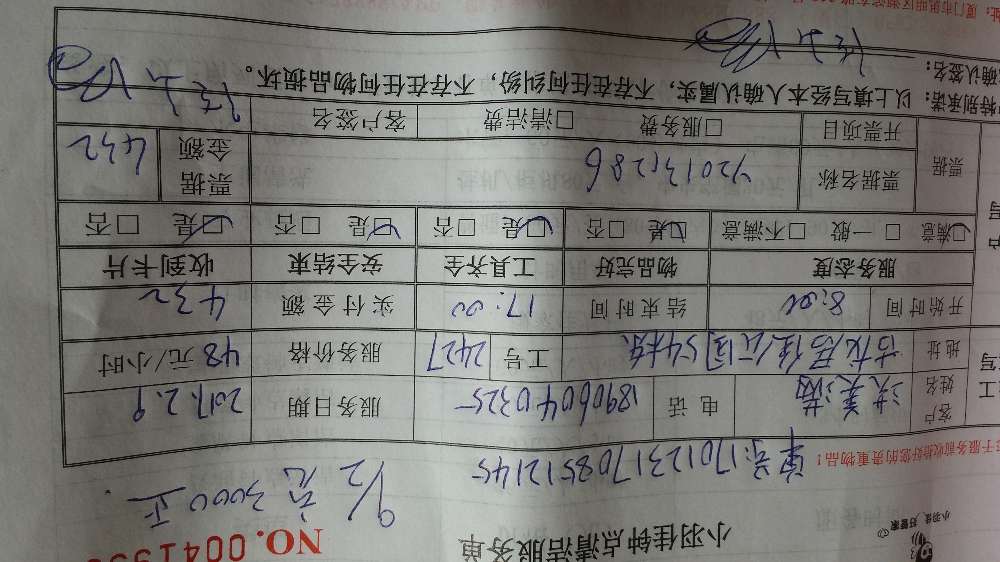 小羽佳 好管家
小羽佳钟点清洁服务单
NO. 004195
9/2 充3000正
单号:1701231708512145
于服务前收拾好您的贵重物品!
客户姓名 洪美满 电话 18906040325 服务日期 2017.2.9
地址 古龙居住公园54栋 工号 2427 服务价格 48元/小时
开始时间 8:00 结束时间 17:00 实付金额 432
服务态度 物品完好 工具齐全 安全结束 收到卡片
☑满意 □一般 □不满意 ☑是 □否 ☑是 □否 ☑是 □否 ☑是 □否
票据 票据名称 票据金额 432
开票项目 □服务费 □清洁费 客户签名
特别承诺:以上填写经本人确认属实,不存在任何纠纷,不存在任何物品损坏。
确认签名: